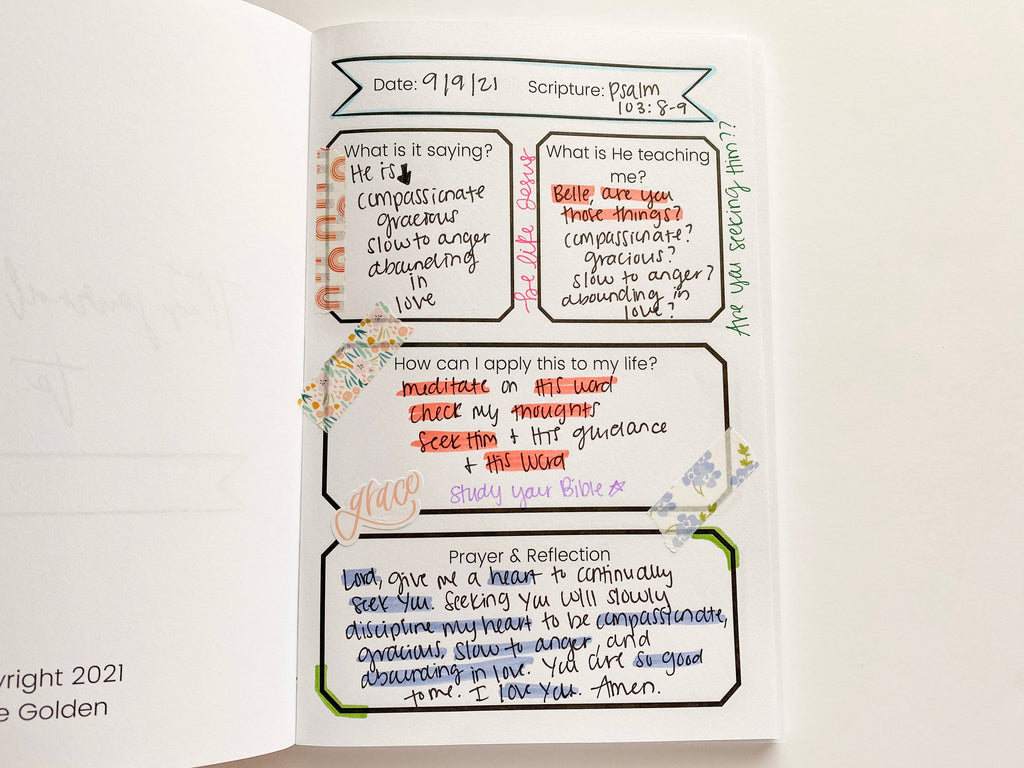 Date: 9/9/21 Scripture: Psalm
103: 8-9
What is it saying?
He is
compassionate
gracious
slow to anger
abounding
in
love
be like Jesus
What is He teaching
me?
Belle, are you
those things?
compassionate?
gracious?
slow to anger?
abounding in
love?
Are you seeking Him??
How can I apply this to my life?
meditate on His word
Check my thoughts
Seek Him + His guidance
+ His Word
Study your Bible
grace
Prayer & Reflection
Lord, give me a heart to continually
seek You. Seeking You will slowly
discipline my heart to be compassionate,
gracious, slow to anger, and
abounding in love. You are so good
to me. I love You. Amen.
yright 2021
e Golden